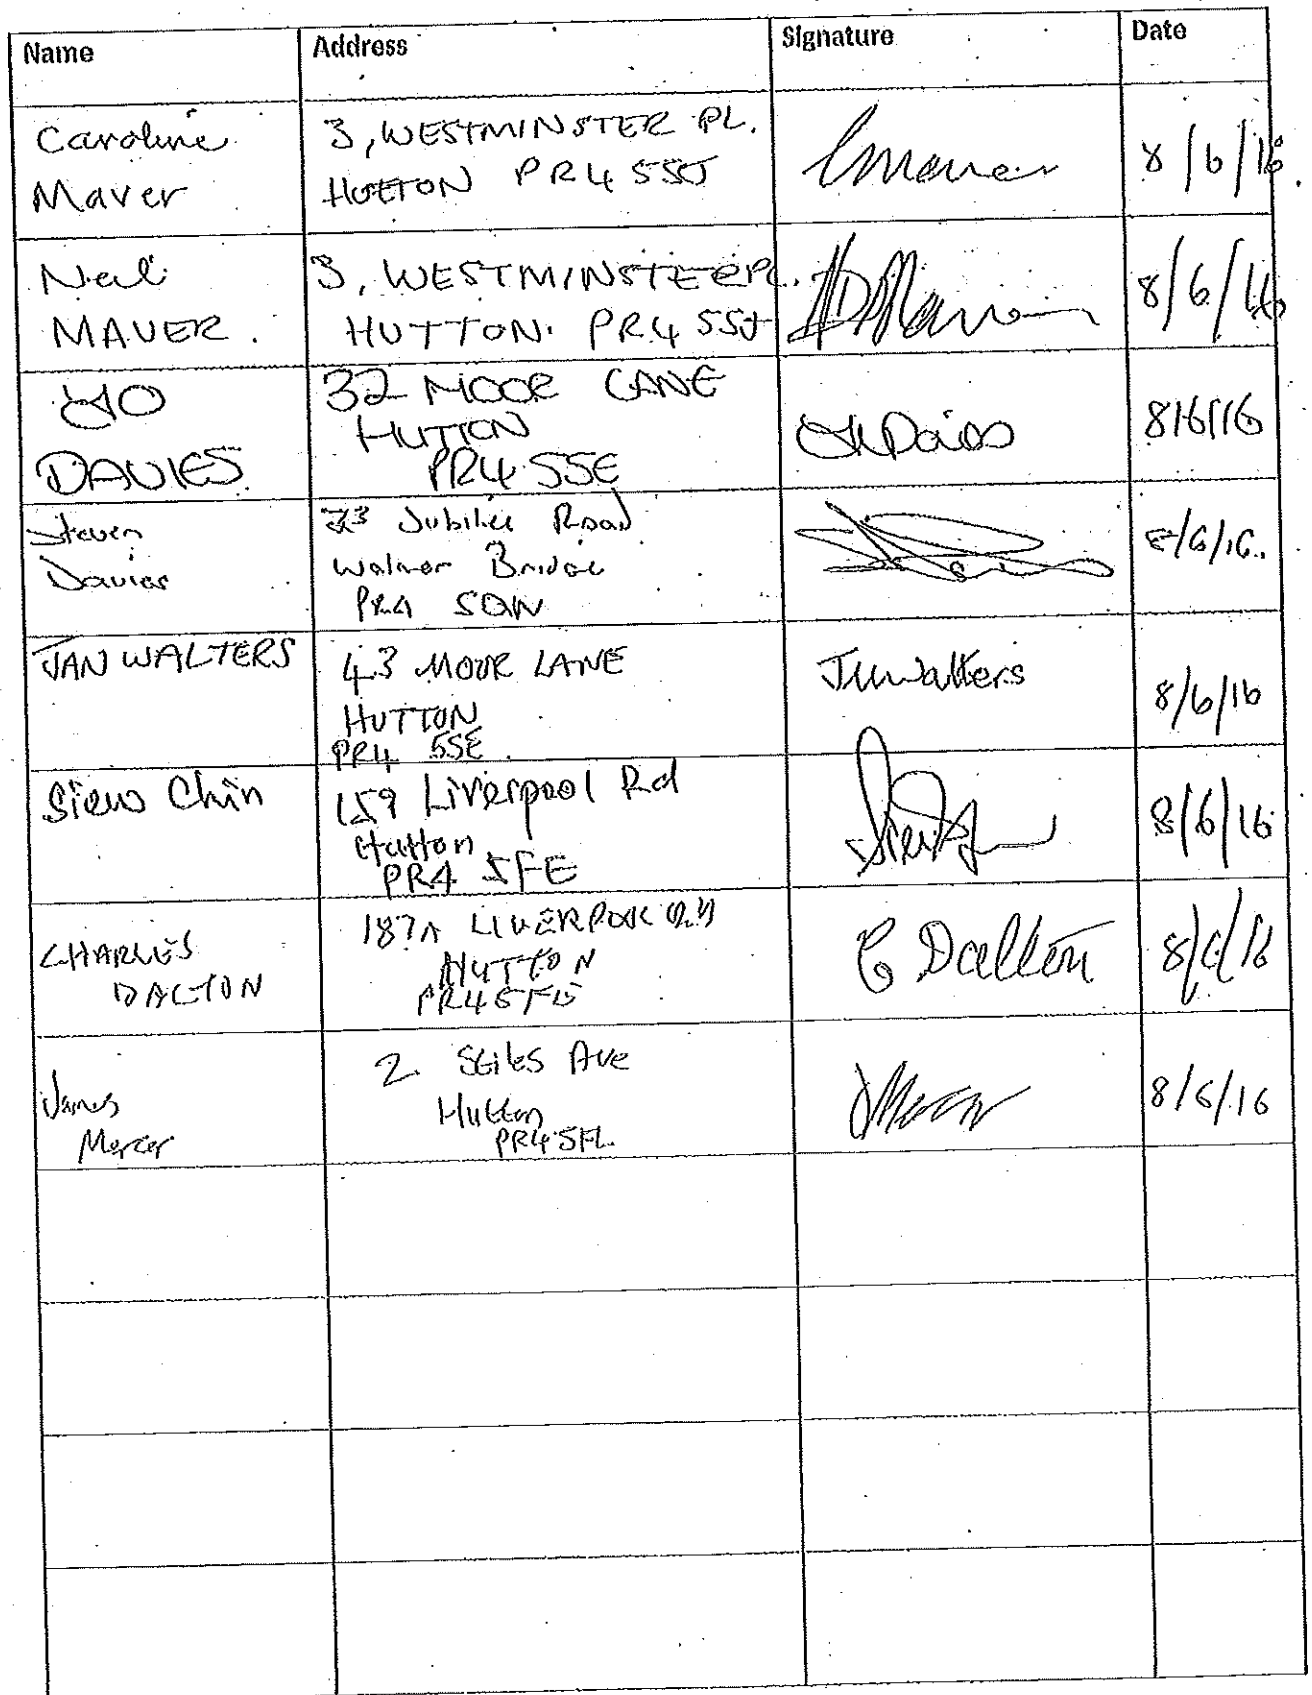 Name Address Signature Date
Caroline Maver
3, WESTMINSTER PL.
HUTTON PR4 5SJ
8/6/16.
Neil
MAVER.
3, WESTMINSTER PL.
HUTTON. PR4 5SJ
8/6/16
JO
DAVIES
32 MOOR LANE
HUTTON
PR4 5SE
8/6/16
Steven
Davies
Jubilee Road
Walmer Bridge
PR4 5QW
8/6/16.
JAN WALTERS
43 MOOR LANE
HUTTON
PR4 5SE.
JMWalters
8/6/16
Siew Chin
159 Liverpool Rd
Hutton
PR4 5FE
8/6/16
CHARLES
DALTON
187A LIVERPOOL RD
HUTTON
PR4 5FE
C Dalton
8/6/16
James
Mercer
2 Stiles Ave
Hutton
PR4 5FL.
JMercer
8/6/16